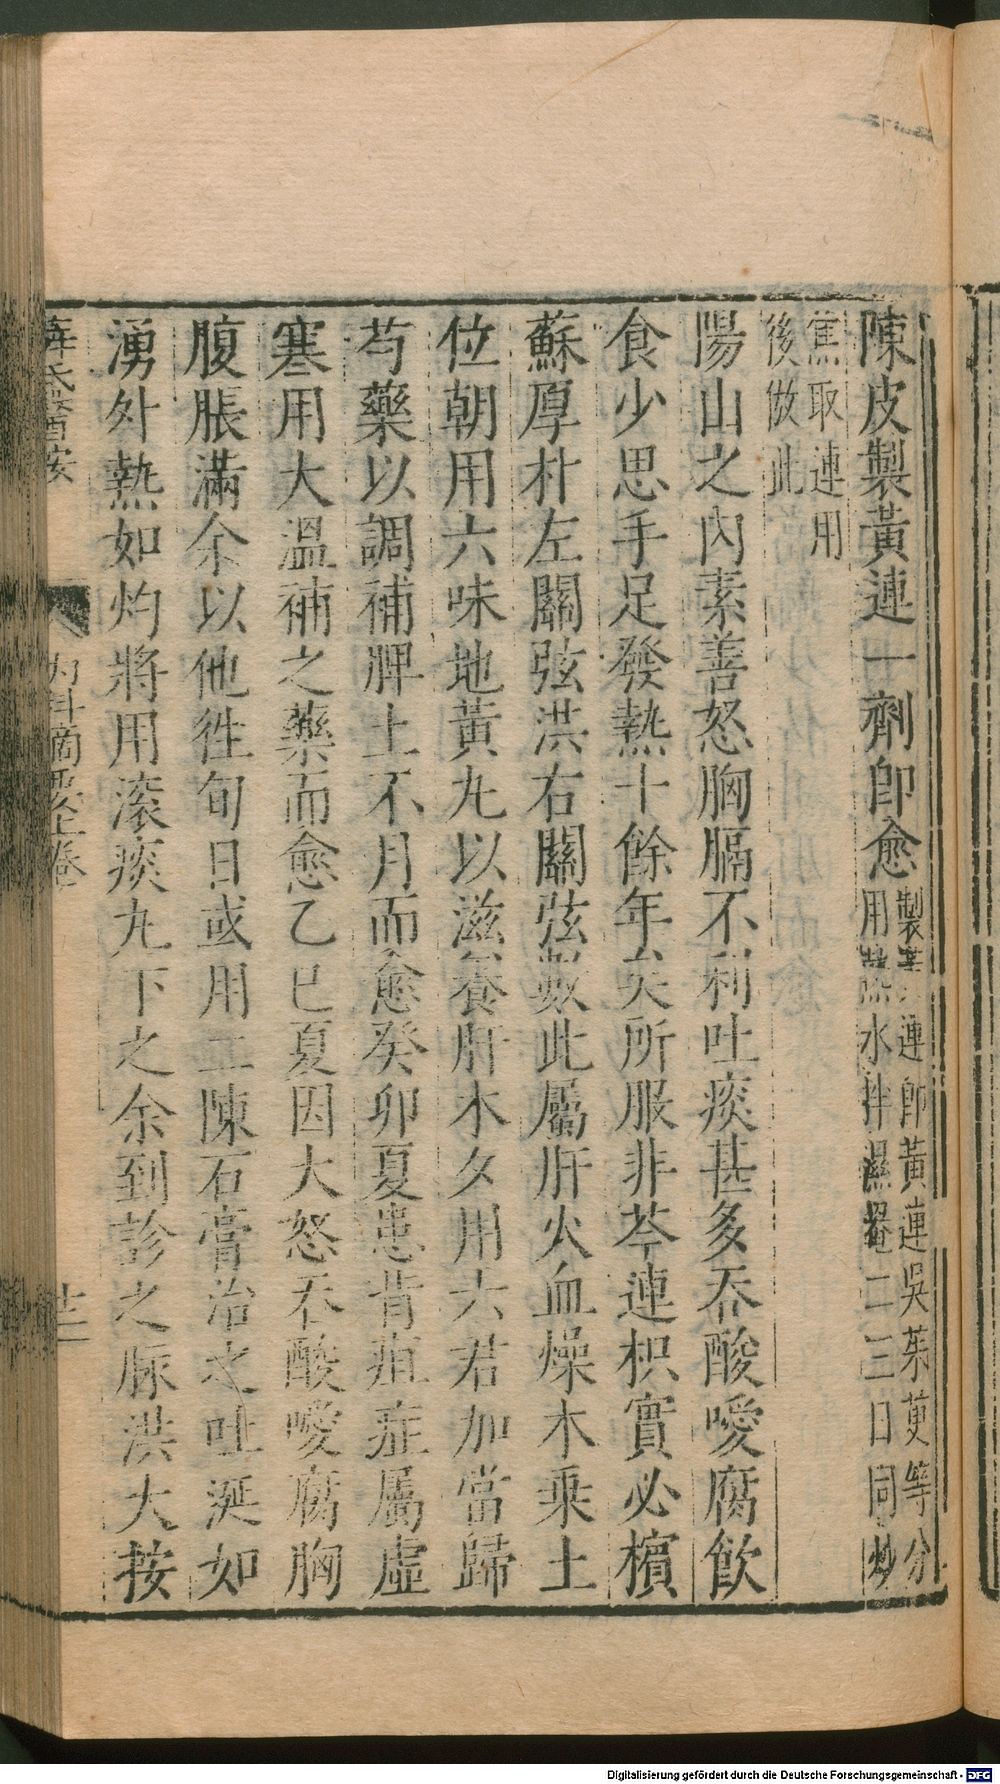 陳皮製黃連一劑卽愈製黃連卽黃連吳茱萸等分
用熱水拌濕罨二三日同炒
焦取連用
後倣此
陽山之內素善怒胸膈不利吐痰甚多吞酸噯腐飲
食少思手足發熱十餘年矣所服非芩連枳實必檳
蘇厚朴左關弦洪右關弦數此屬肝火血燥木乗土
位朝用六味地黃丸以滋養肝木夕用六君加當歸
芍藥以調補脾土不月而愈癸卯夏患背疽症屬虛
寒用大溫補之藥而愈乙巳夏因大怒吞酸噯腐胸
腹脹滿余以他徃旬日或用二陳石膏治之吐涎如
湧外熱如灼將用滾痰丸下之余到診之脉洪大按
薛氏醫按
內科摘要上卷
十二
Digitalisierung gefördert durch die Deutsche Forschungsgemeinschaft - DFG